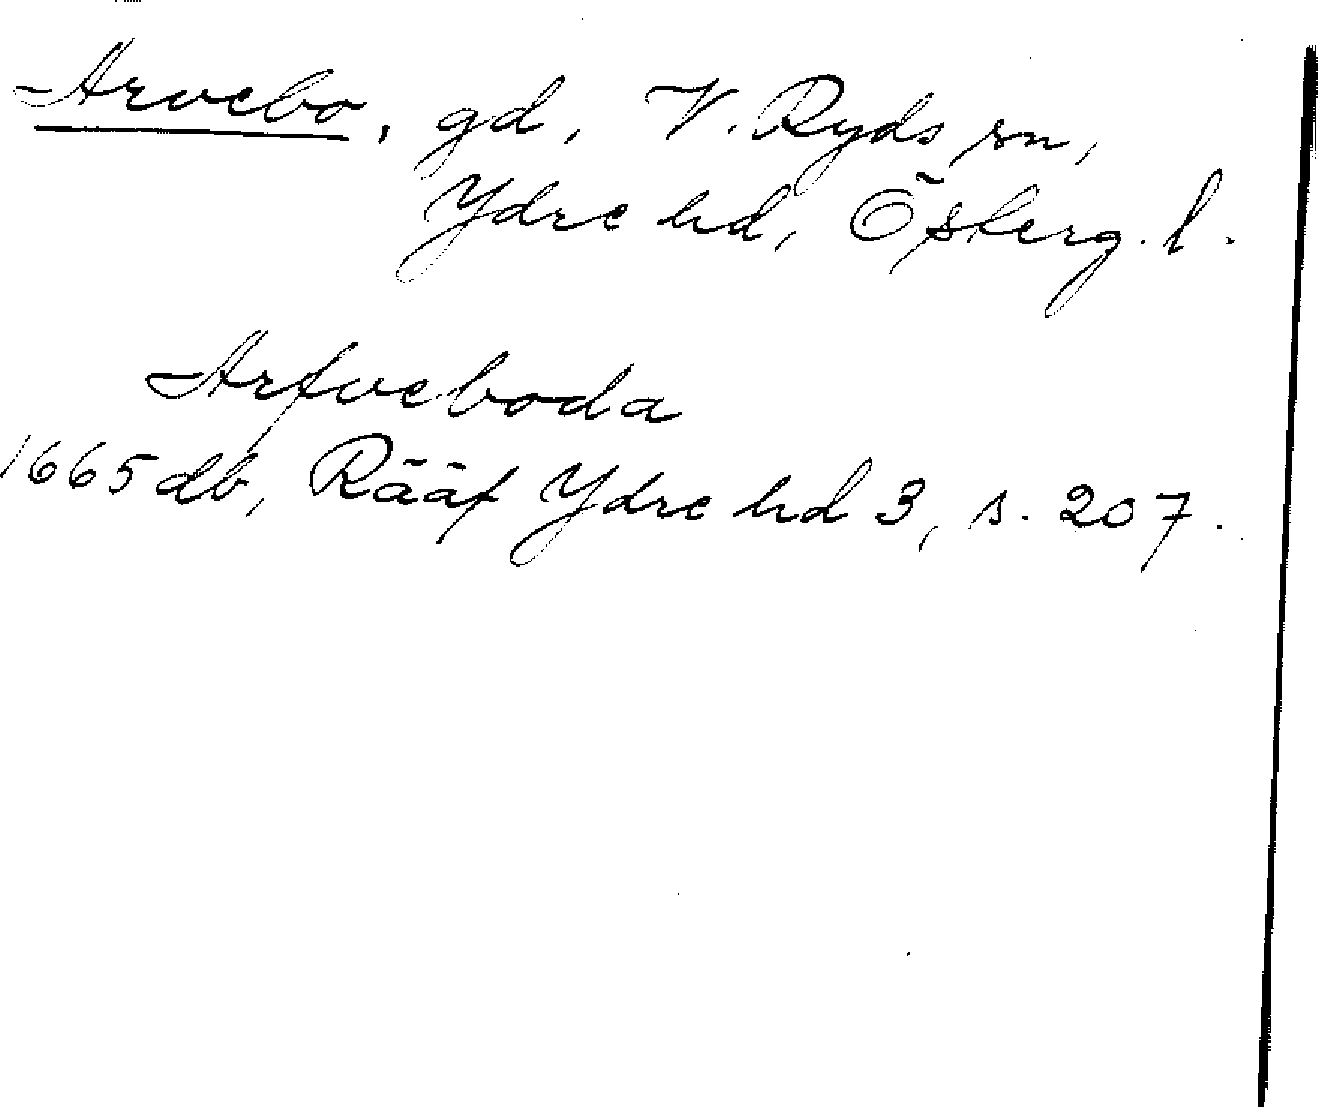 Arvebo, gd, V. Ryds sn,
Ydre hd, Österg. l.
Arfveboda
1665 db, Rääf Ydre hd 3, s. 207.